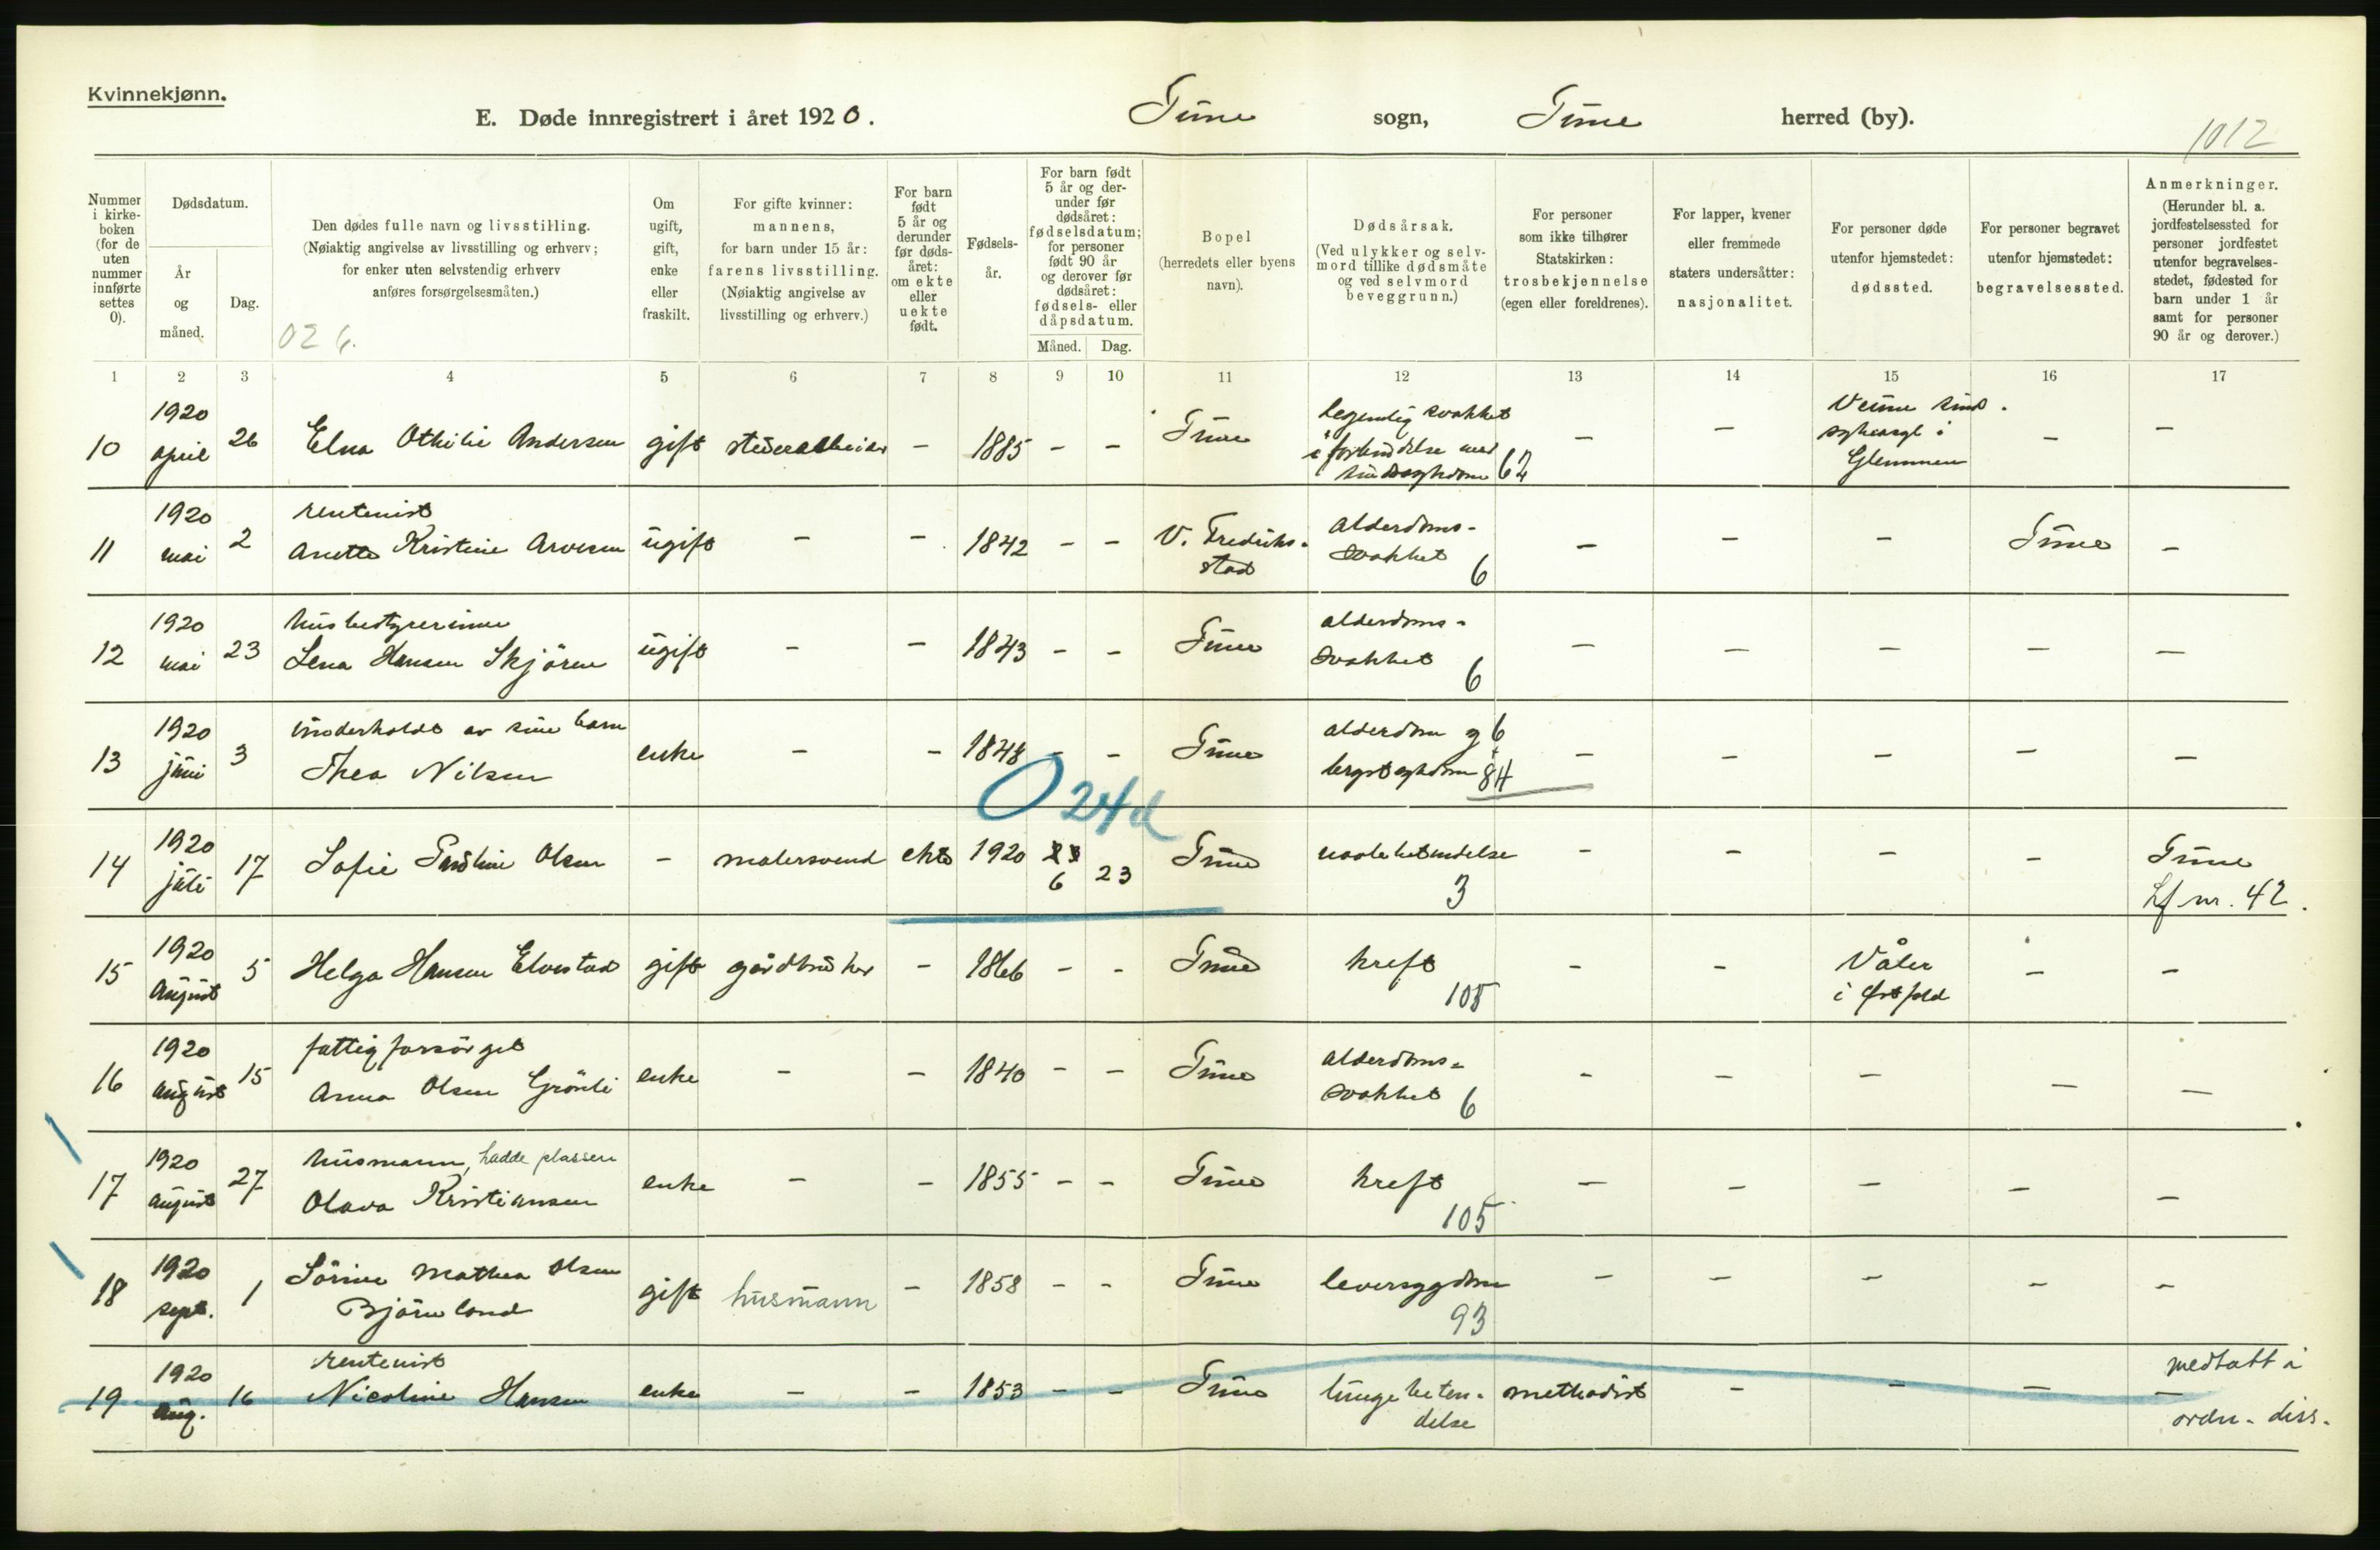 Kvinnekjønn.
E. Døde innregistrert i året 1920. Tune sogn, Tune herred (by).
1012
Nummer i kirkeboken (for de uten nummer innførte settes 0).
Dødsdatum.
År og måned.
Dag.
Den dødes fulle navn og livsstilling.
(Nøiaktig angivelse av livsstilling og erhverv;
for enker uten selvstendig erhverv
anføres forsørgelsesmåten.)
026.
Om ugift, gift, enke eller fraskilt.
For gifte kvinner: mannens, for barn under 15 år: farens livsstilling. (Nøiaktig angivelse av livsstilling og erhverv.)
For barn født 5 år og derunder før dødsåret: om ekte eller uekte født.
Fødselsår.
For barn født 5 år og derunder før dødsåret: fødselsdatum; for personer født 90 år og derover før dødsåret: fødsels- eller dåpsdatum.
Måned. Dag.
Bopel (herredets eller byens navn).
Dødsårsak. (Ved ulykker og selvmord tillike dødsmåte og ved selvmord beveggrunn.)
For personer som ikke tilhører Statskirken: trosbekjennelse (egen eller foreldrenes).
For lapper, kvener eller fremmede staters undersåtter: nasjonalitet.
For personer døde utenfor hjemstedet: dødssted.
For personer begravet utenfor hjemstedet: begravelsessted.
Anmerkninger. (Herunder bl. a. jordfestelsessted for personer jordfestet utenfor begravelsesstedet, fødested for barn under 1 år samt for personer 90 år og derover.)
1 2 3 4 5 6 7 8 9 10 11 12 13 14 15 16 17
10 1920 april 26 Elna Othilie Andersen gift - 1885 - - Tune legemlig svakhet i forbindelse med sindssykdom 62 - - Veum sindssykeasyl i Glemmen - -
11 1920 mai 2 rentenist Anette Kristine Arvesen ugift - - 1842 - - V. Fredrikstad alderdoms-svakhet 6 - - - Tune -
12 1920 mai 23 husbestyrerinne Lena Hansen Skjören ugift - - 1843 - - Tune alderdoms-svakhet 6 - - - - -
13 1920 juni 3 underholdt av sine barn Thea Nilsen enke - - 1848 - - Tune alderdom og brystsykdom 6 + 84 - - - - -
O 24d
14 1920 juli 17 Sofie Pauline Olsen - malersvend ekte 1920 6 23 Tune navlebetendelse 3 - - - - Tune Lf nr. 42.
15 1920 August 5 Helga Hansen Elvestad gift gårdbruker - 1866 - - Tune kreft 105 - - Våler i Østfold - -
16 1920 August 15 fattigforsörget Anna Olsen Grönli enke - - 1840 - - Tune alderdoms-svakhet 6 - - - - -
17 1920 August 27 husmann, hadde plassen Olava Kristiansen enke - - 1855 - - Tune kreft 105 - - - - -
18 1920 sept. 1 Sörine Mathea Olsen Björneland gift husmann - 1858 - - Tune leversygdom 93 - - - - -
19 1920 aug. 16 rentenist Nicoline Hansen enke - - 1853 - - Tune lungebeten-delse methodist - - - - medtatt i ordn. diss.